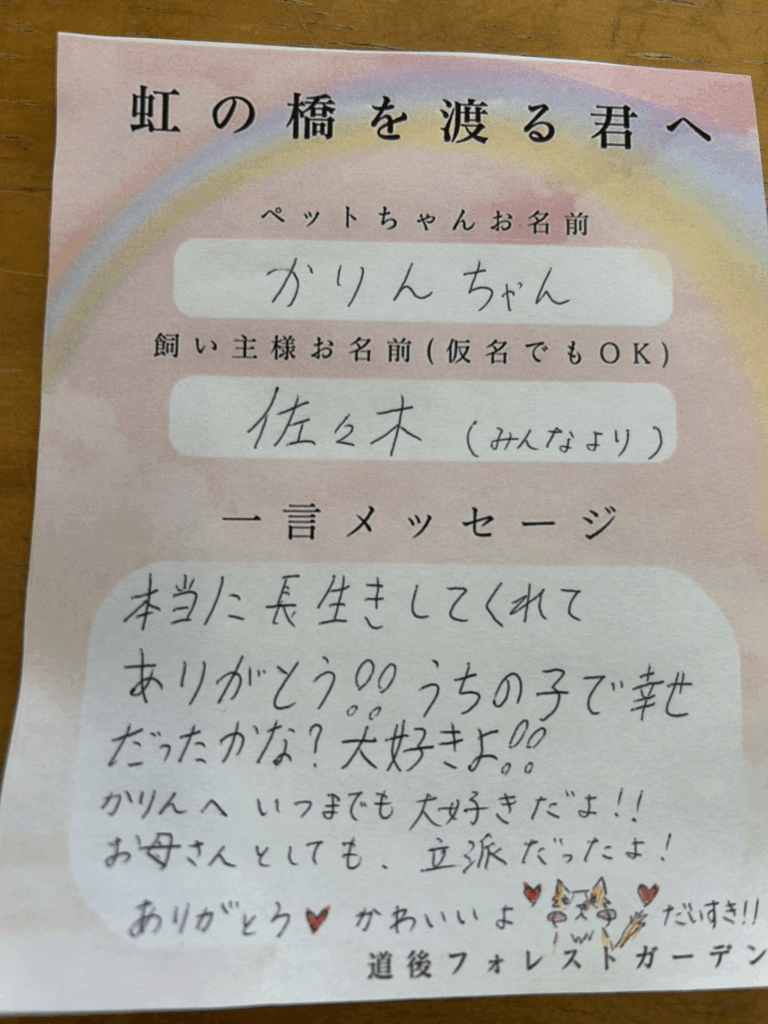 虹の橋を渡る君へ
ペットちゃんお名前
かりんちゃん
飼い主様お名前(仮名でもOK)
佐々木 (みんなより)
一言メッセージ
本当に長生きしてくれて
ありがとう!! うちの子で幸せ
だったかな? 大好きよ!!
かりんへ いつまでも 大好きだよ!!
お母さんとしても、立派だったよ!
ありがとう♥ かわいいよ ♥ ♥ だいすき!!
道後フォレストガーデン